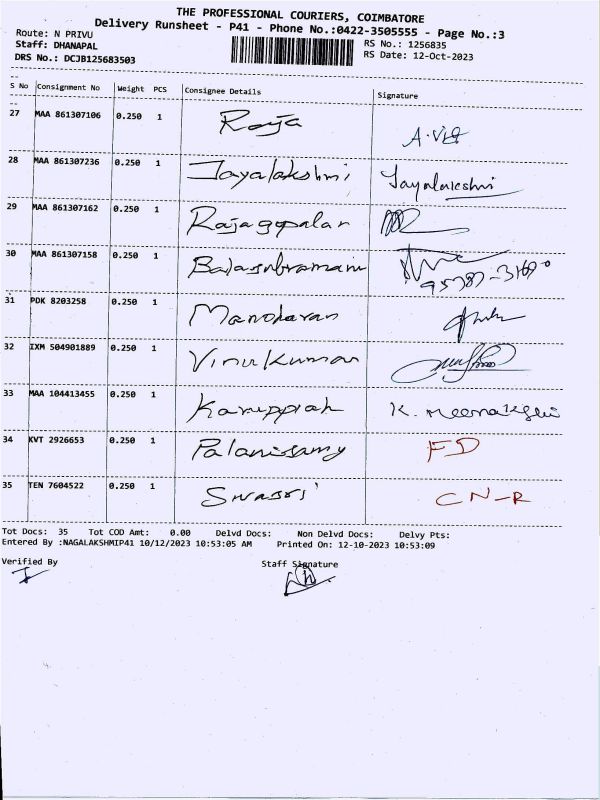 THE PROFESSIONAL COURIERS, COIMBATORE
Delivery Runsheet - P41 - Phone No.:0422-3505555 - Page No.:3
Route: N PRIVU RS No.: 1256835
Staff: DHANAPAL RS Date: 12-Oct-2023
DRS No.: DCJB125683503
S No Consignment No Weight PCS Consignee Details Signature
27 MAA 861307106 0.250 1 Raja
28 MAA 861307236 0.250 1 Jayalakshmi Jayalakshmi
29 MAA 861307162 0.250 1 Rajagopalan
30 MAA 861307158 0.250 1 Balasubramani
31 PDK 8203258 0.250 1 Manoharan
32 IXM 504901889 0.250 1 Vinu Kumar
33 MAA 104413455 0.250 1 Karuppiah K. Meenakshi
34 KVT 2926653 0.250 1 Palanisamy FD
35 TEN 7604522 0.250 1 CN-R
Tot Docs: 35 Tot COD Amt: 0.00 Delvd Docs: Non Delvd Docs: Delvy Pts:
Entered By :NAGALAKSHMIP41 10/12/2023 10:53:05 AM Printed On: 12-10-2023 10:53:09
Verified By Staff Signature